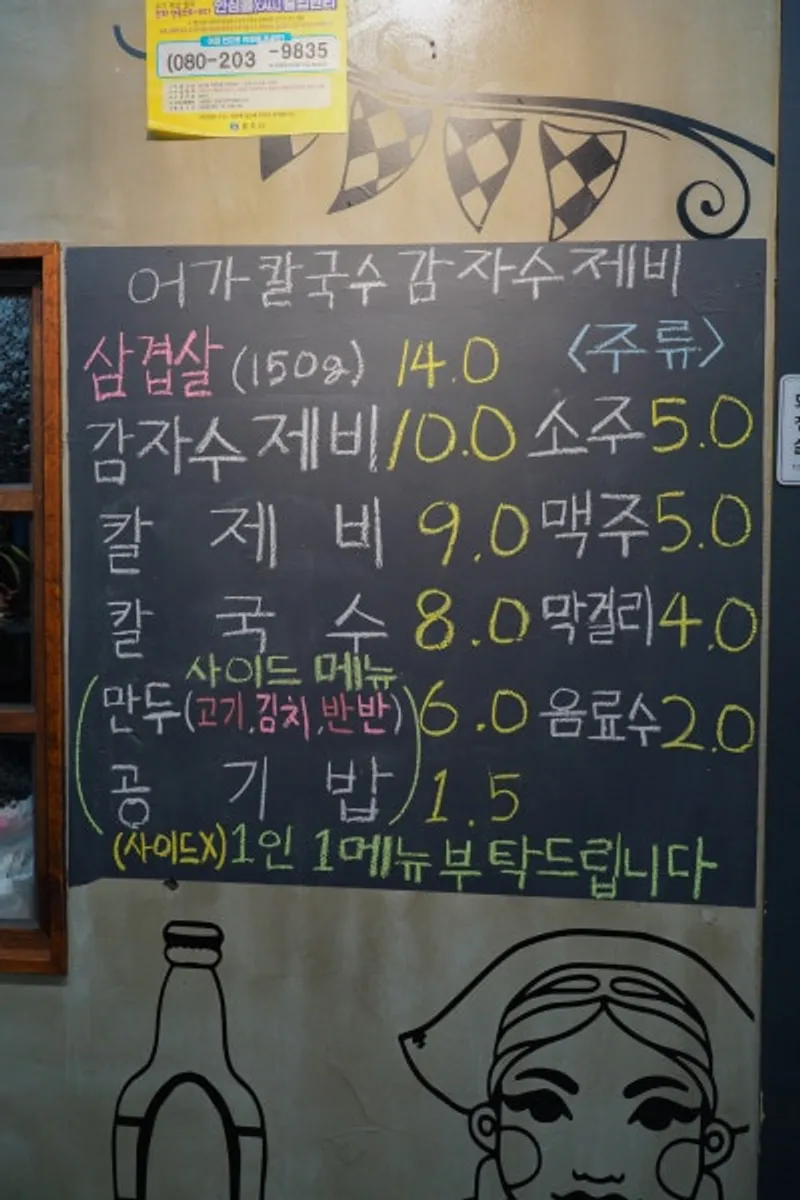 (080-203 -9835
어가칼국수감자수제비
삼겹살 (150g) 14.0 <주류>
감자수제비 10.0 소주 5.0
칼제비 9.0 맥주 5.0
칼국수 8.0 막걸리 4.0
사이드 메뉴
만두(고기,김치,반반) 6.0 음료수 2.0
공기밥 1.5
(사이드X) 1인 1메뉴 부탁드립니다